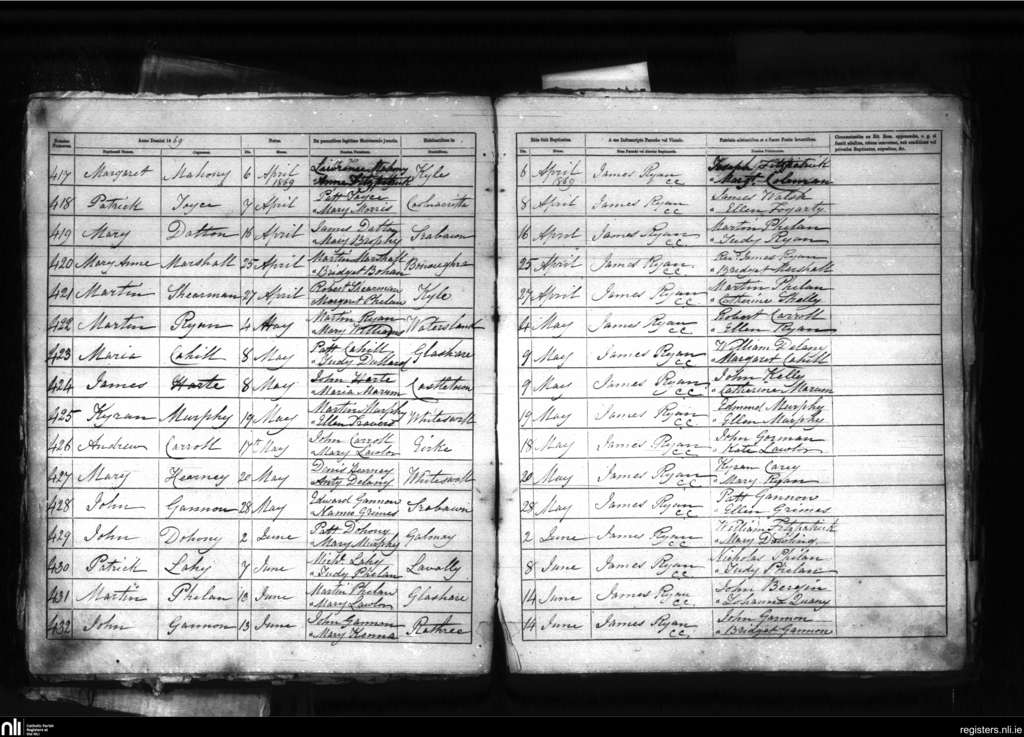 Anno Domini 1869
417 Margaret Mahony 6 April 1869 Lawrence Mahony Kyle 6 April 1869 James Ryan CC Joseph Fitzpatrick
Anne Fitzpatrick " Margt. Coleman
418 Patrick Joyce 7 April Patt Joyce 8 April James Ryan CC James Walsh
" Mary Morris " Ellen Fogarty
419 Mary Dalton 16 April James Dalton 16 April James Ryan CC Martin Phelan
" Mary Brophy " Judy Ryan
420 Mary Anne Marshall 25 April Martin Marshall 25 April James Ryan CC Revd James Ryan
" Bridget Bohan " Bridget Marshall
421 Martin Shearman 27 April Robert Shearman Kyle 27 April James Ryan CC Martin Phelan
" Margaret Phelan " Catherine Skelly
422 Martin Ryan 4 May Martin Ryan Watersland 4 May James Ryan CC Robert Carroll
" Mary Williams " Ellen Ryan
423 Maria Cahill 8 May Patt Cahill Glashare 9 May James Ryan CC William Delany
" Judy " Margaret Cahill
424 James Harte 8 May John Harte Castletown 9 May James Ryan CC John Kelly
" Maria Marum " Catherine Marum
425 Kyran Murphy 19 May Martin Murphy Whiteswall 19 May James Ryan CC Edmund Murphy
" Ellen Travers " Ellen Murphy
426 Andrew Carroll 17th May John Carroll Eirke 18 May James Ryan CC John Gorman
" Mary Lawlor " Kate Lawlor
427 Mary Kearney 20 May Denis Kearney Whiteswall 20 May James Ryan CC Kyran Carey
" Anty Delany " Mary Ryan
428 John Gannon 28 May Edward Gannon 28 May James Ryan CC Patt Gannon
" Grimes " Ellen Grimes
429 John Dohony 2 June Patt Dohony Galmoy 2 June James Ryan CC William Fitzpatrick
" Mary Murphy " Mary Dowling
430 Patrick Lahy 7 June Michl. Lahy Lavally 8 June James Ryan CC Nicholas Phelan
" Judy Phelan " Judy Phelan
431 Martin Phelan 10 June Martin Phelan Glashare 14 June James Ryan CC John Bergin
" Mary Lawlor " Johanna
432 John Gannon 13 June John Gannon Rathree 14 June James Ryan CC John Gannon
" Mary Kenna " Bridget Gannon
nli Catholic Parish Registers at the NLI
registers.nli.ie